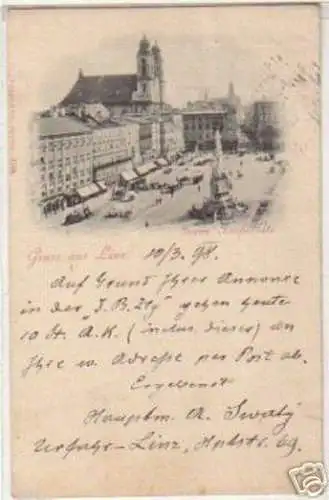 Gruss aus Linz. 10/3. 98.
Franz Josefs-Platz
Auf Grund Ihrer Annonce
in der "I. B. Ztg" gehen heute
10 St. A.K. (inclus. dieser) an
Ihre w. Adresse per Post ab.
Ergebenst
Hauptm. A. Swatý
Urfahr-Linz, 69.